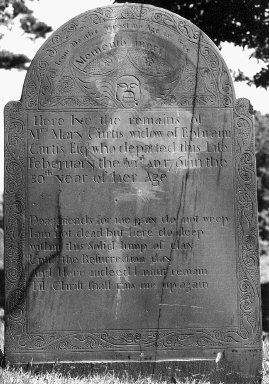 from Deaths
Memento mori
Here lye the remains of
Mrs Mary Curtis widow of Ephraim
Curtis Esq who departed this Life
Feberuary the
in the
80th Year of her Age
Dear
for me pray do not weep
I am not dead but here do sleep
within this Solid lump of clay
Until the Resurrection day
And Here indeed I must remain
Til Christ shall rais me up again